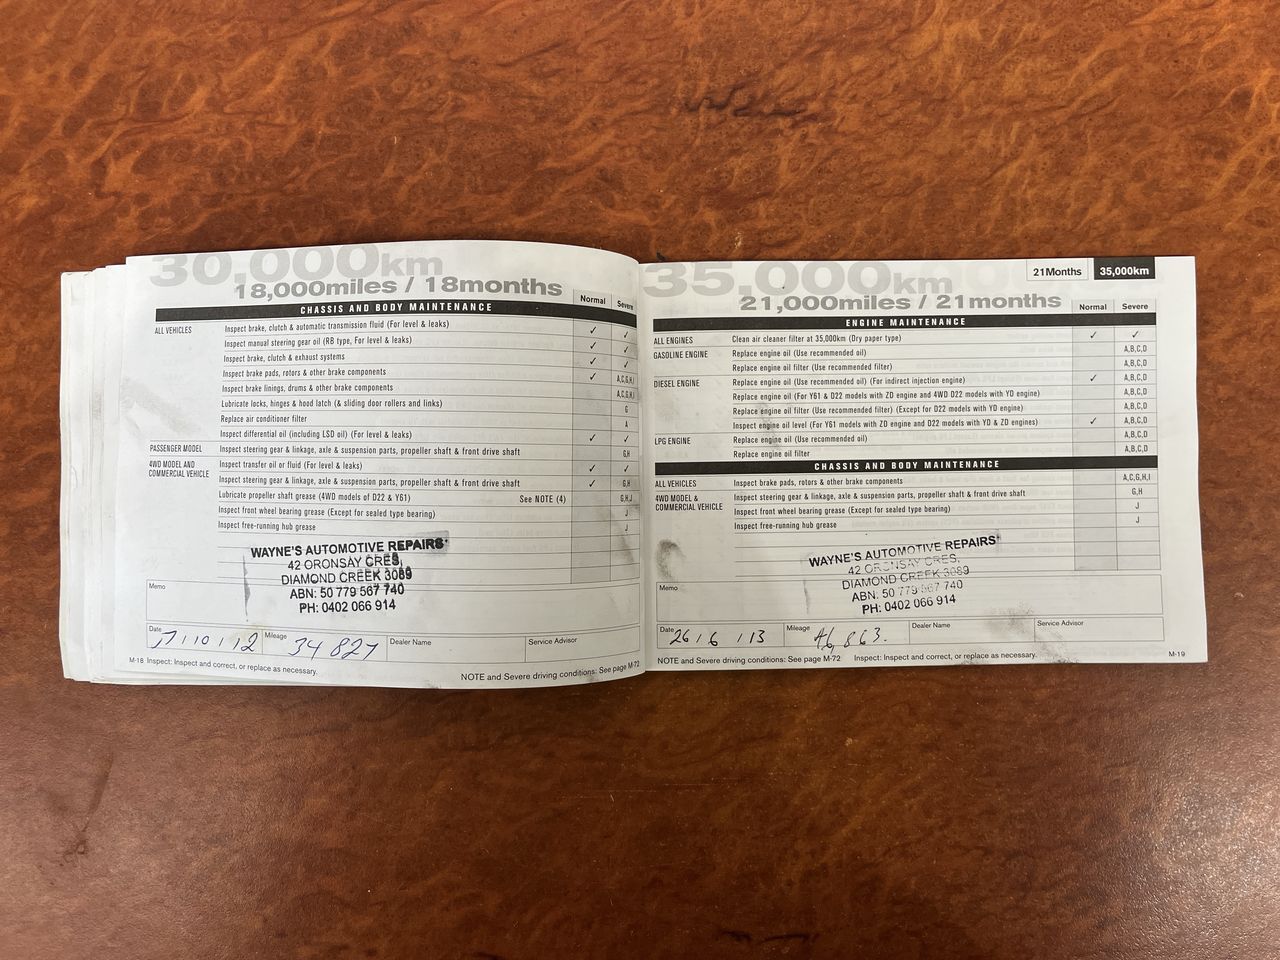 30,000km
18,000miles / 18months
CHASSIS AND BODY MAINTENANCE Normal Severe
ALL VEHICLES Inspect brake, clutch & automatic transmission fluid (For level & leaks) ✓ ✓
Inspect manual steering gear oil (RB type, For level & leaks) ✓ ✓
Inspect brake, clutch & exhaust systems ✓ ✓
Inspect brake pads, rotors & other brake components ✓ A,C,G,H,I
Inspect brake linings, drums & other brake components A,C,G,H,I
Lubricate locks, hinges & hood latch (& sliding door rollers and links) G
Replace air conditioner filter A
Inspect differential oil (including LSD oil) (For level & leaks) ✓ ✓
PASSENGER MODEL Inspect steering gear & linkage, axle & suspension parts, propeller shaft & front drive shaft G,H
4WD MODEL AND Inspect transfer oil or fluid (For level & leaks) ✓ ✓
COMMERCIAL VEHICLE Inspect steering gear & linkage, axle & suspension parts, propeller shaft & front drive shaft ✓ G,H
Lubricate propeller shaft grease (4WD models of D22 & Y61) See NOTE (4) G,H,J
Inspect front wheel bearing grease (Except for sealed type bearing) J
Inspect free-running hub grease J
WAYNE'S AUTOMOTIVE REPAIRS
42 ORONSAY CRES,
DIAMOND CREEK 3089
ABN: 50 779 567 740
PH: 0402 066 914
Memo
Date 7/10/12 Mileage 34 827 Dealer Name Service Advisor
M-18 Inspect: Inspect and correct, or replace as necessary.
NOTE and Severe driving conditions: See page M-72
35,000km
21Months 35,000km
21,000miles / 21months
ENGINE MAINTENANCE Normal Severe
ALL ENGINES Clean air cleaner filter at 35,000km (Dry paper type) ✓ ✓
GASOLINE ENGINE Replace engine oil (Use recommended oil) A,B,C,D
Replace engine oil filter (Use recommended filter) A,B,C,D
DIESEL ENGINE Replace engine oil (Use recommended oil) (For indirect injection engine) ✓ A,B,C,D
Replace engine oil (For Y61 & D22 models with ZD engine and 4WD D22 models with YD engine) A,B,C,D
Replace engine oil filter (Use recommended filter) (Except for D22 models with YD engine) A,B,C,D
Inspect engine oil level (For Y61 models with ZD engine and D22 models with YD & ZD engines) ✓ A,B,C,D
LPG ENGINE Replace engine oil (Use recommended oil) A,B,C,D
Replace engine oil filter A,B,C,D
CHASSIS AND BODY MAINTENANCE
ALL VEHICLES Inspect brake pads, rotors & other brake components A,C,G,H,I
4WD MODEL & Inspect steering gear & linkage, axle & suspension parts, propeller shaft & front drive shaft G,H
COMMERCIAL VEHICLE Inspect front wheel bearing grease (Except for sealed type bearing) J
Inspect free-running hub grease J
WAYNE'S AUTOMOTIVE REPAIRS
42 ORONSAY CRES,
DIAMOND CREEK 3089
ABN: 50 779 567 740
PH: 0402 066 914
Memo
Date 26/6/13 Mileage 46,863. Dealer Name Service Advisor
NOTE and Severe driving conditions: See page M-72 Inspect: Inspect and correct, or replace as necessary. M-19